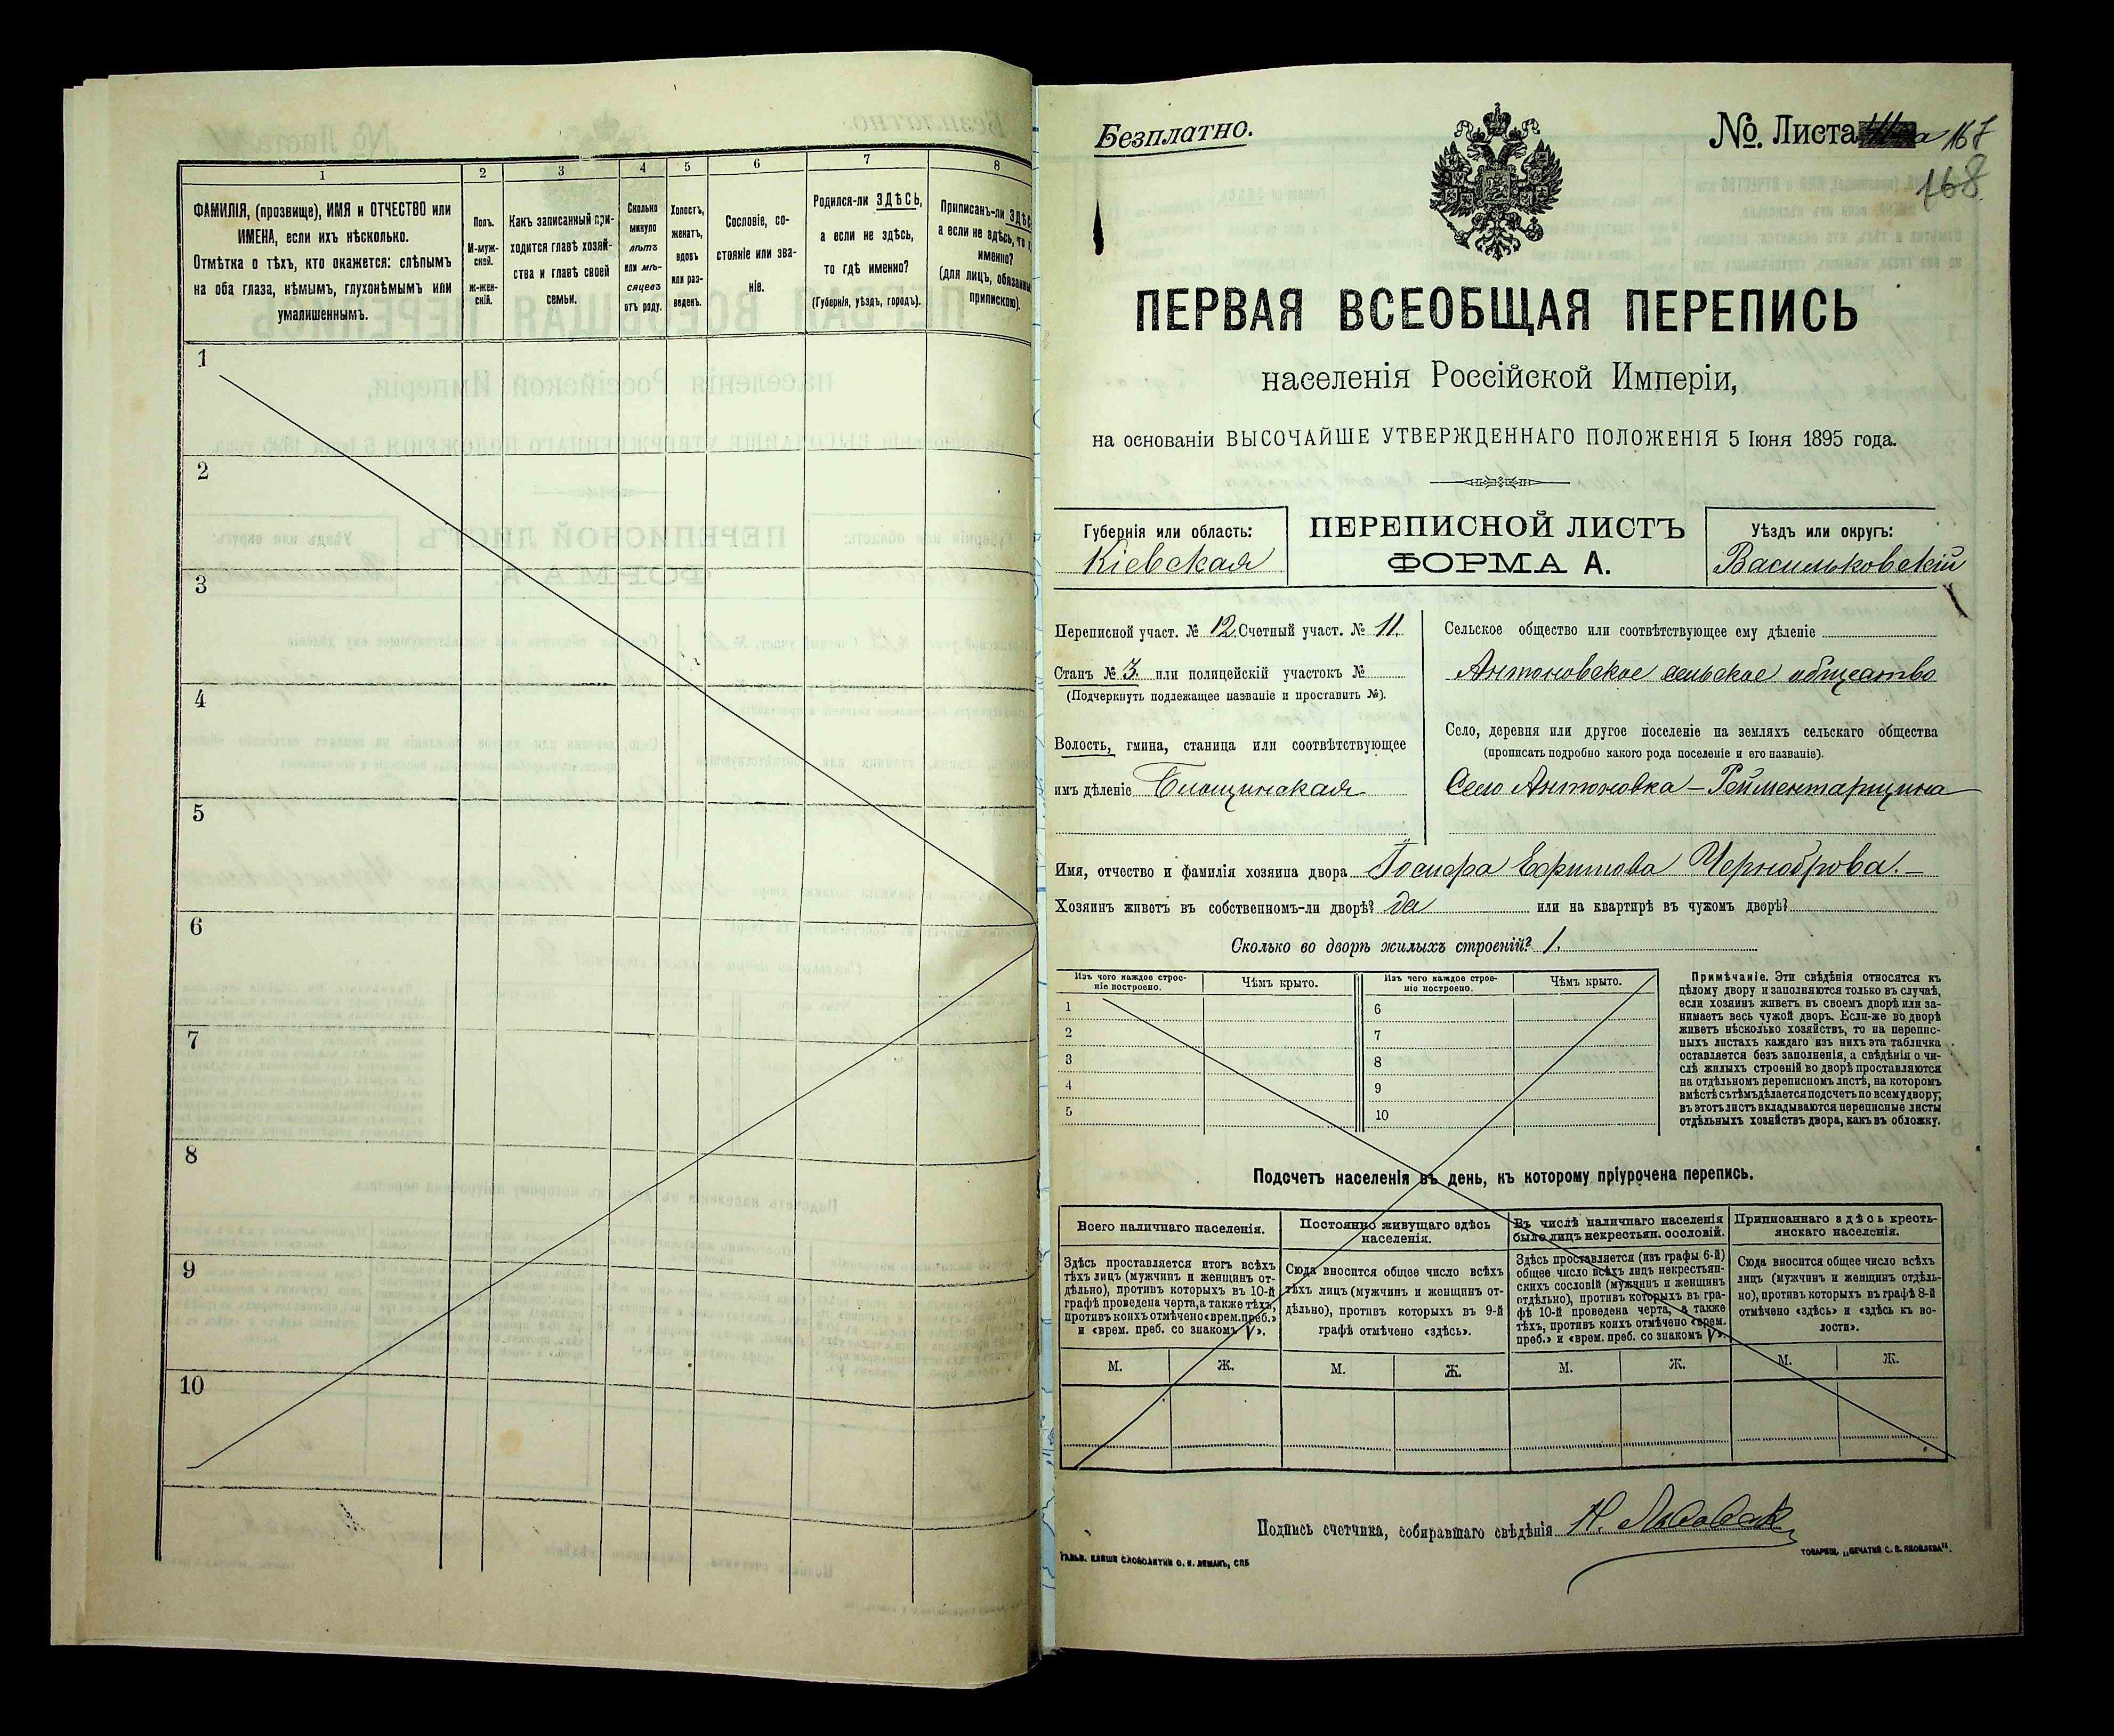 1 2 3 4 5 6 7 8
ФАМИЛІЯ, (прозвище), ИМЯ и ОТЧЕСТВО или
ИМЕНА, если ихъ нѣсколько.
Отмѣтка о тѣхъ, кто окажется: слѣпымъ
на оба глаза, нѣмымъ, глухонѣмымъ или
умалишеннымъ.
Полъ.
М-муж-
ской.
ж-жен-
скій.
Какъ записанный при-
ходится главѣ хозяй-
ства и главѣ своей
семьи.
Сколько
минуло
лѣтъ
или мѣ-
сяцевъ
отъ роду.
Холостъ,
женатъ,
вдовъ
или раз-
веденъ.
Сословіе, со-
стояніе или зва-
ніе.
Родился-ли ЗДѢСЬ,
а если не здѣсь,
то гдѣ именно?
(Губернія, уѣздъ, городъ).
Приписанъ-ли ЗДѢС
а если не здѣсь, то
именно?
(для лицъ, обязанны
припискою).
1
2
3
4
5
6
7
8
9
10
Безплатно.
№. Листа 167
168
ПЕРВАЯ ВСЕОБЩАЯ ПЕРЕПИСЬ
населенія Россійской Имперіи,
на основаніи ВЫСОЧАЙШЕ УТВЕРЖДЕННАГО ПОЛОЖЕНІЯ 5 Іюня 1895 года.
Губернія или область:
Кіевская
ПЕРЕПИСНОЙ ЛИСТЪ
ФОРМА А.
Уѣздъ или округъ:
Васильковскій
Переписной участ. № 12. Счетный участ. № 11.
Станъ № 3. или полицейскій участокъ №
(Подчеркнуть подлежащее названіе и проставить №).
Волость, гмина, станица или соотвѣтствующее
имъ дѣленіе
Сельское общество или соотвѣтствующее ему дѣленіе
Антоновское сельское общество
Село, деревня или другое поселеніе на земляхъ сельскаго общества
(прописать подробно какого рода поселеніе и его названіе).
Село Антоновка – Рейментарщина
Имя, отчество и фамилія хозяина двора Іосифа Ефимова Черноброва. –
Хозяинъ живетъ въ собственномъ-ли дворѣ? да или на квартирѣ въ чужомъ дворѣ?
Сколько во дворѣ жилыхъ строеній? 1.
Изъ чего каждое строе-
ніе построено.
Чѣмъ крыто.
Изъ чего каждое строе-
ніе построено.
Чѣмъ крыто.
1 6
2 7
3 8
4 9
5 10
Примѣчаніе. Эти свѣдѣнія относятся къ
цѣлому двору и заполняются только въ случаѣ,
если хозяинъ живетъ въ своемъ дворѣ или за-
нимаетъ весь чужой дворъ. Если-же во дворѣ
живетъ нѣсколько хозяйствъ, то на перепис-
ныхъ листахъ каждаго изъ нихъ эта табличка
оставляется безъ заполненія, а свѣдѣнія о чи-
слѣ жилыхъ строеній во дворѣ проставляются
на отдѣльномъ переписномъ листѣ, на которомъ
вмѣстѣ съ тѣмъ дѣлается подсчетъ по всему двору;
въ этотъ листъ вкладываются переписные листы
отдѣльныхъ хозяйствъ двора, какъ въ обложку.
Подсчетъ населенія въ день, къ которому пріурочена перепись.
Всего наличнаго населенія.
Здѣсь проставляется итогъ всѣхъ
тѣхъ лицъ (мужчинъ и женщинъ от-
дѣльно), противъ которыхъ въ 10-й
графѣ проведена черта, а также тѣхъ,
противъ коихъ отмѣчено «врем. преб.»
и «врем. преб. со знакомъ V».
Постоянно живущаго здѣсь
населенія.
Сюда вносится общее число всѣхъ
тѣхъ лицъ (мужчинъ и женщинъ от-
дѣльно), противъ которыхъ въ 9-й
графѣ отмѣчено «здѣсь».
Въ числѣ наличнаго населенія
было лицъ некрестьян. сословій.
Здѣсь проставляется (изъ графы 6-й)
общее число всѣхъ лицъ некрестьян-
скихъ сословій (мужчинъ и женщинъ
отдѣльно), противъ которыхъ въ гра-
фѣ 10-й проведена черта, а также
тѣхъ, противъ коихъ отмѣчено «врем.
преб.» и «врем. преб. со знакомъ V».
Приписаннаго здѣсь кресть-
янскаго населенія.
Сюда вносится общее число всѣхъ
лицъ (мужчинъ и женщинъ отдѣль-
но), противъ которыхъ въ графѣ 8-й
отмѣчено «здѣсь» и «здѣсь къ во-
лости».
М. Ж. М. Ж. М. Ж. М. Ж.
Подпись счетчика, собиравшаго свѣдѣнія
ГАЛЬВ. КЛИШЕ СЛОВОЛИТНИ О. И. ЛЕМАНЪ, СПБ
ТОВАРИЩ. „ПЕЧАТНЯ С. П. ЯКОВЛЕВА".